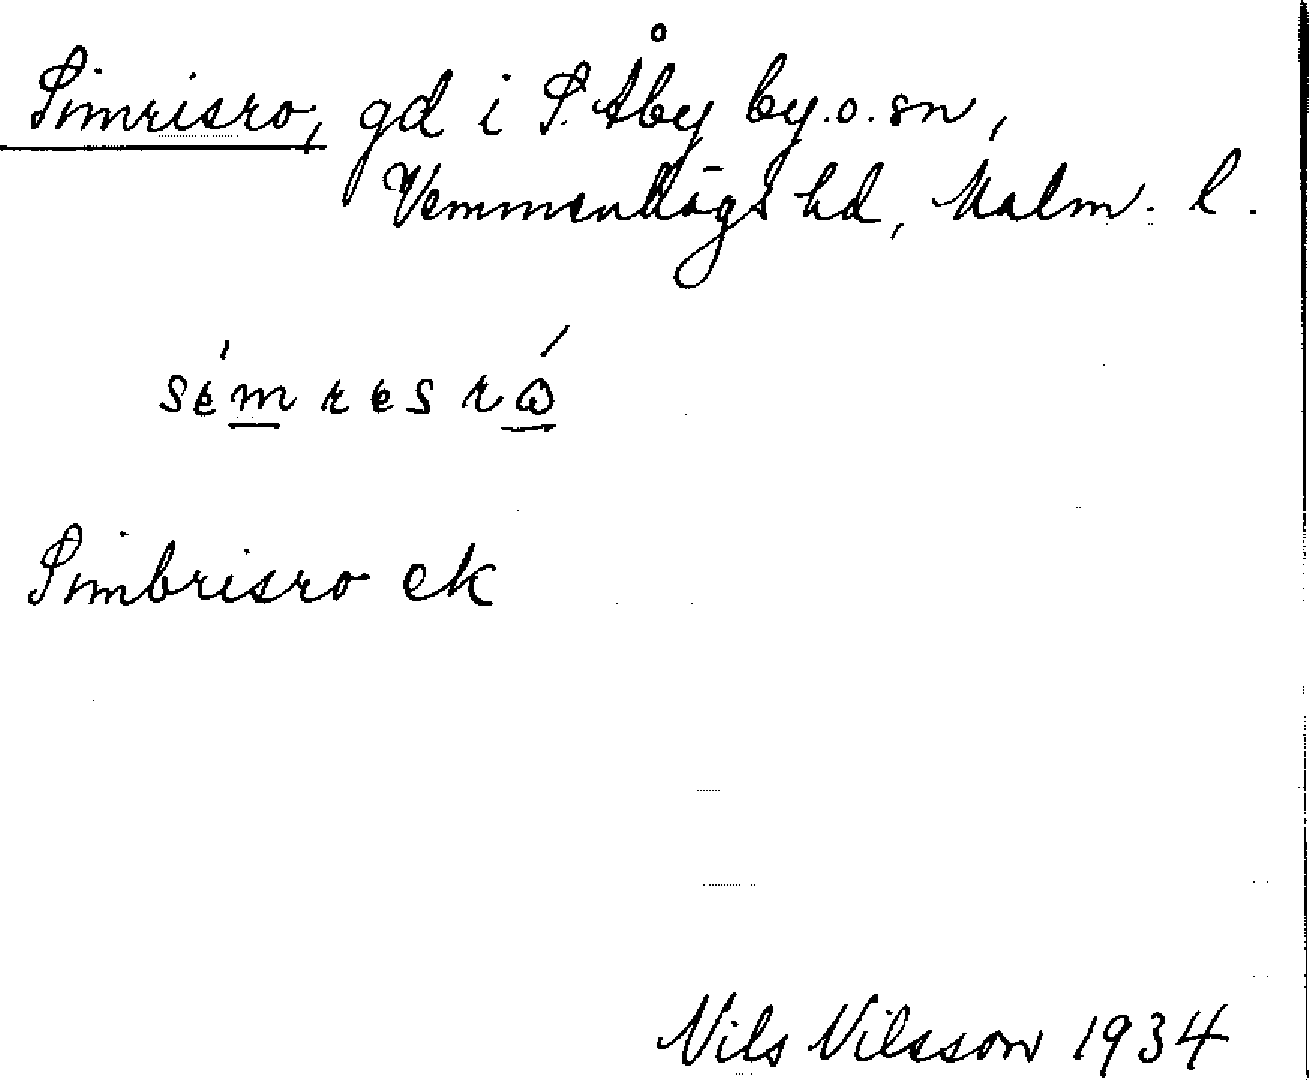 Simrisro, gd i S. Åby by. o. sn,
Vemmenhögs hd, Malm. l.
sémresró
Simbrisro ek
Nils Nilsson 1934